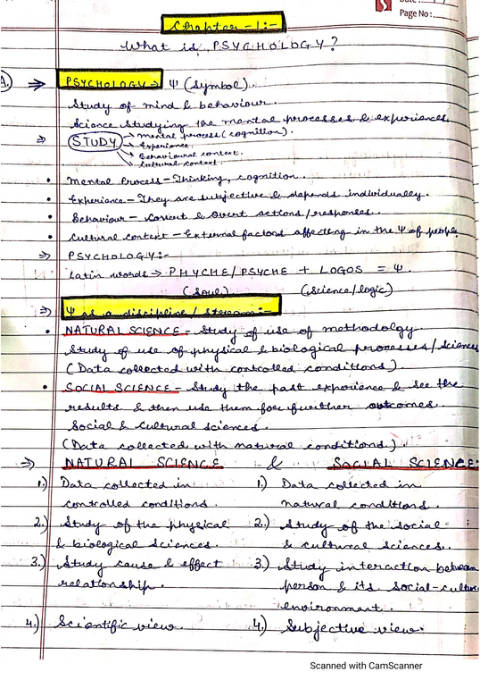 Page No:
Chapter - 1:-
What is PSYCHOLOGY?
A.
⇒ PSYCHOLOGY → Ψ (Symbol).
Study of mind & behaviour.
Science studying the mental processes & experiences
⇒ STUDY → mental process (cognition).
→ Experience.
→ Behavioural context.
→ Cultural context.
• Mental Process - Thinking, cognition.
• Experience - They are subjective & depends individually.
• Behaviour - Covert & overt actions/responses.
• Cultural context - External factors affecting in the Ψ of people.
⇒ PSYCHOLOGY:-
Latin words → PHYCHE/PSYCHE + LOGOS = Ψ.
(Soul) (Science/logic)
⇒ Ψ as a discipline / Stream:-
• NATURAL SCIENCE - Study of use of methodology.
Study of use of physical & biological processes/sciences
(Data collected with controlled conditions).
• SOCIAL SCIENCE - Study the past experience & see the
results & then use them for further outcomes.
Social & cultural sciences.
(Data collected with natural conditions).
⇒ NATURAL SCIENCE & SOCIAL SCIENCE:
1.) Data collected in 1) Data collected in
controlled conditions. natural conditions.
2.) Study of the physical 2.) Study of the social
& biological sciences. & cultural sciences.
3.) Study cause & effect 3.) Study interaction between
relationship. person & its social-cultural
environment.
4.) Scientific view. 4.) Subjective view.
Scanned with CamScanner